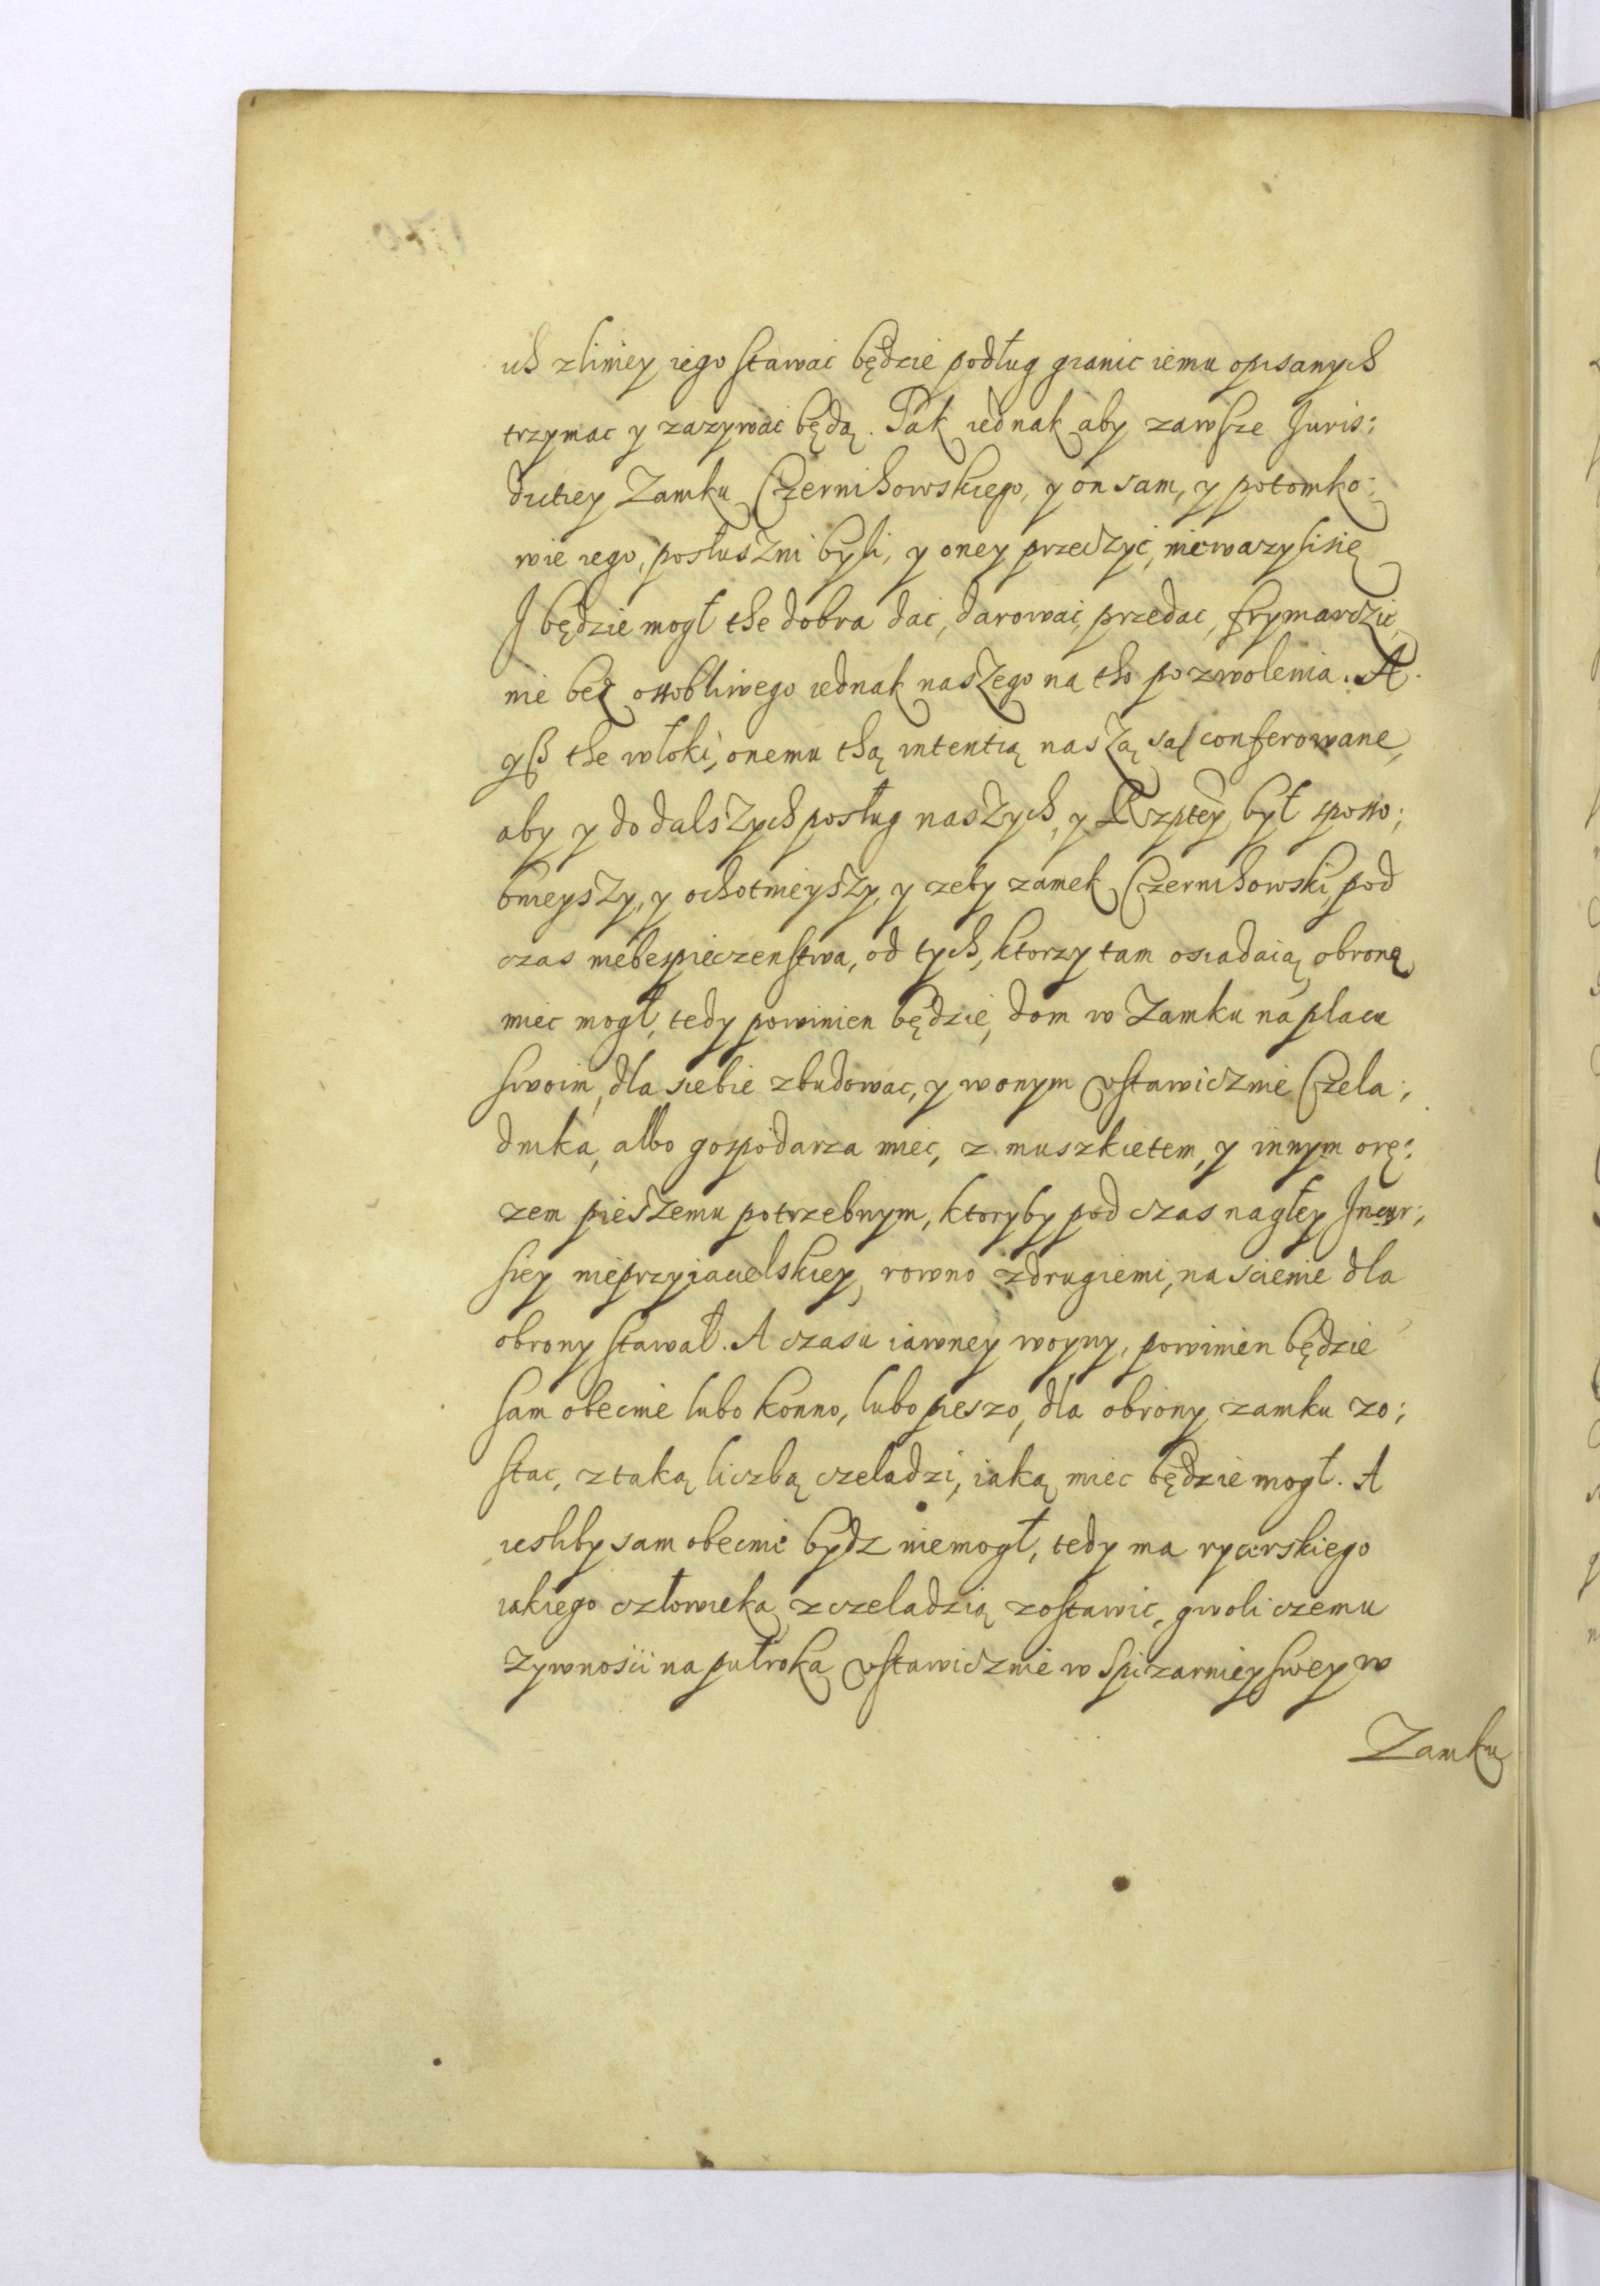 ich z liniey iego stawać będzie podług granic iemu opisanych
trzymac y zazywać będą. Tak iednak aby zawsze Juris:
dictiey Zamku Czernihowskiego, y on sam, y potomko:
wie iego, posłuszni byli, y oney przeczyć, nieważyli się
J będzie mogł the dobra dać, darować, przedać, frymarczić,
nie bez ossobliwego iednak naszego na tho pozwolenia. A
yß the włoki, onemu thą intentią naszą są conferowane,
aby y do dalszych posług naszych, y Rzptey był sposso:
bnieyszy, y ochotnieyszy, y zeby zamek Czernihowski, pod
czas niebezpieczenstwa, od tych, ktorzy tam osiadaią obronę
miec mogł, tedy powinien będzie, dom w Zamku na placu
swoim, dla siebie zbudowac, y w onym vstawicznie Czela:
dnika, albo gospodarza miec, z muszkietem, y innym orę:
zem pieszemu potrzebnym, ktoryby pod czas nagłey Jncur:
siey nieprzyiacielskiey, rowno z drugiemi, na scienie dla
obrony stawał. A czasu iawney woyny, powinien będzie
sam obecnie lubo konno, lubo pieszo, dla obrony zamku zo:
stac, z taką liczbą czeladzi, iaką miec będzie mogł. A
iesliby sam obecnie bydz niemogł, tedy ma rycerskiego
iakiego człowieka z czeladzią zostawic, gwoli czemu
zywnosci na pułroka vstawicznie w spizarniey swey w
Zamku